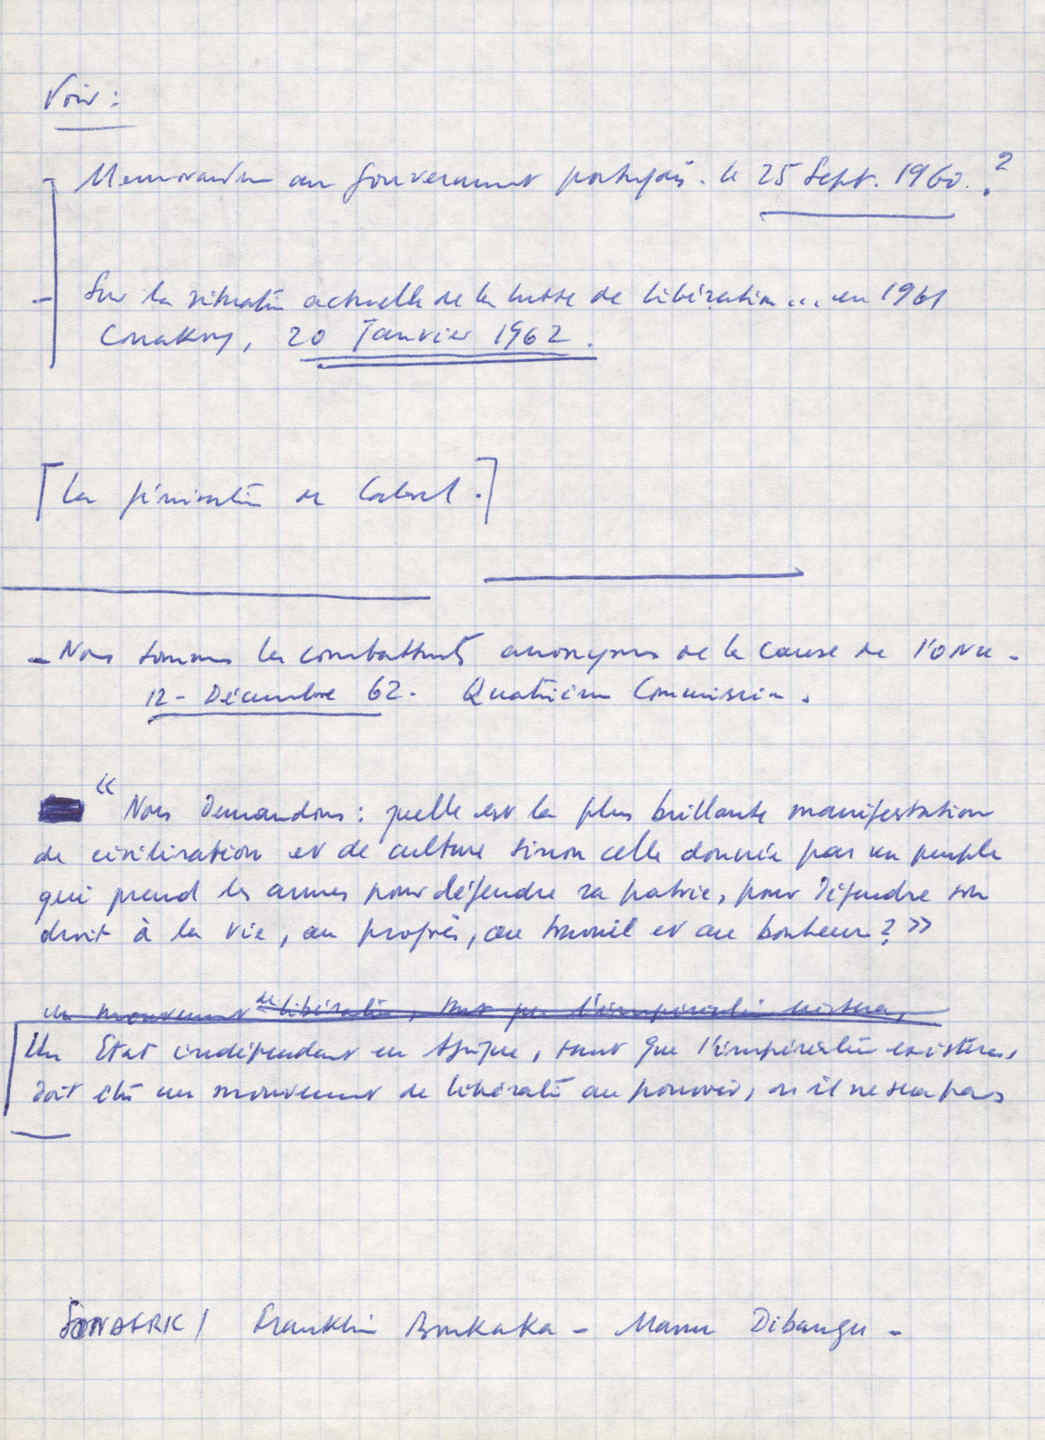 Voir :
- Memorandum au Gouvernement portugais. le 25 Sept. 1960. ?
- Sur la situation actuelle de la lutte de libération... en 1961
Conakry, 20 Janvier 1962.
[La de Cabral.]
- Nous sommes les combattants anonymes de la cause de l'ONU -
12 - Décembre 62. Quatrième Commission.
"Nous Demandons : quelle est la plus brillante manifestation
de civilisation et de culture sinon celle donnée par un peuple
qui prend les armes pour défendre sa patrie, pour défendre son
droit à la vie, au progrès, au travail et au bonheur ? »
un mouvement de libération, tant que l'impérialisme existera,
Un Etat indépendant en Afrique, tant que l'impérialisme existera,
doit être un mouvement de libération au pouvoir, ou il ne sera pas
SONAFRIC / Franklin Boukaka - Manu Dibangu -